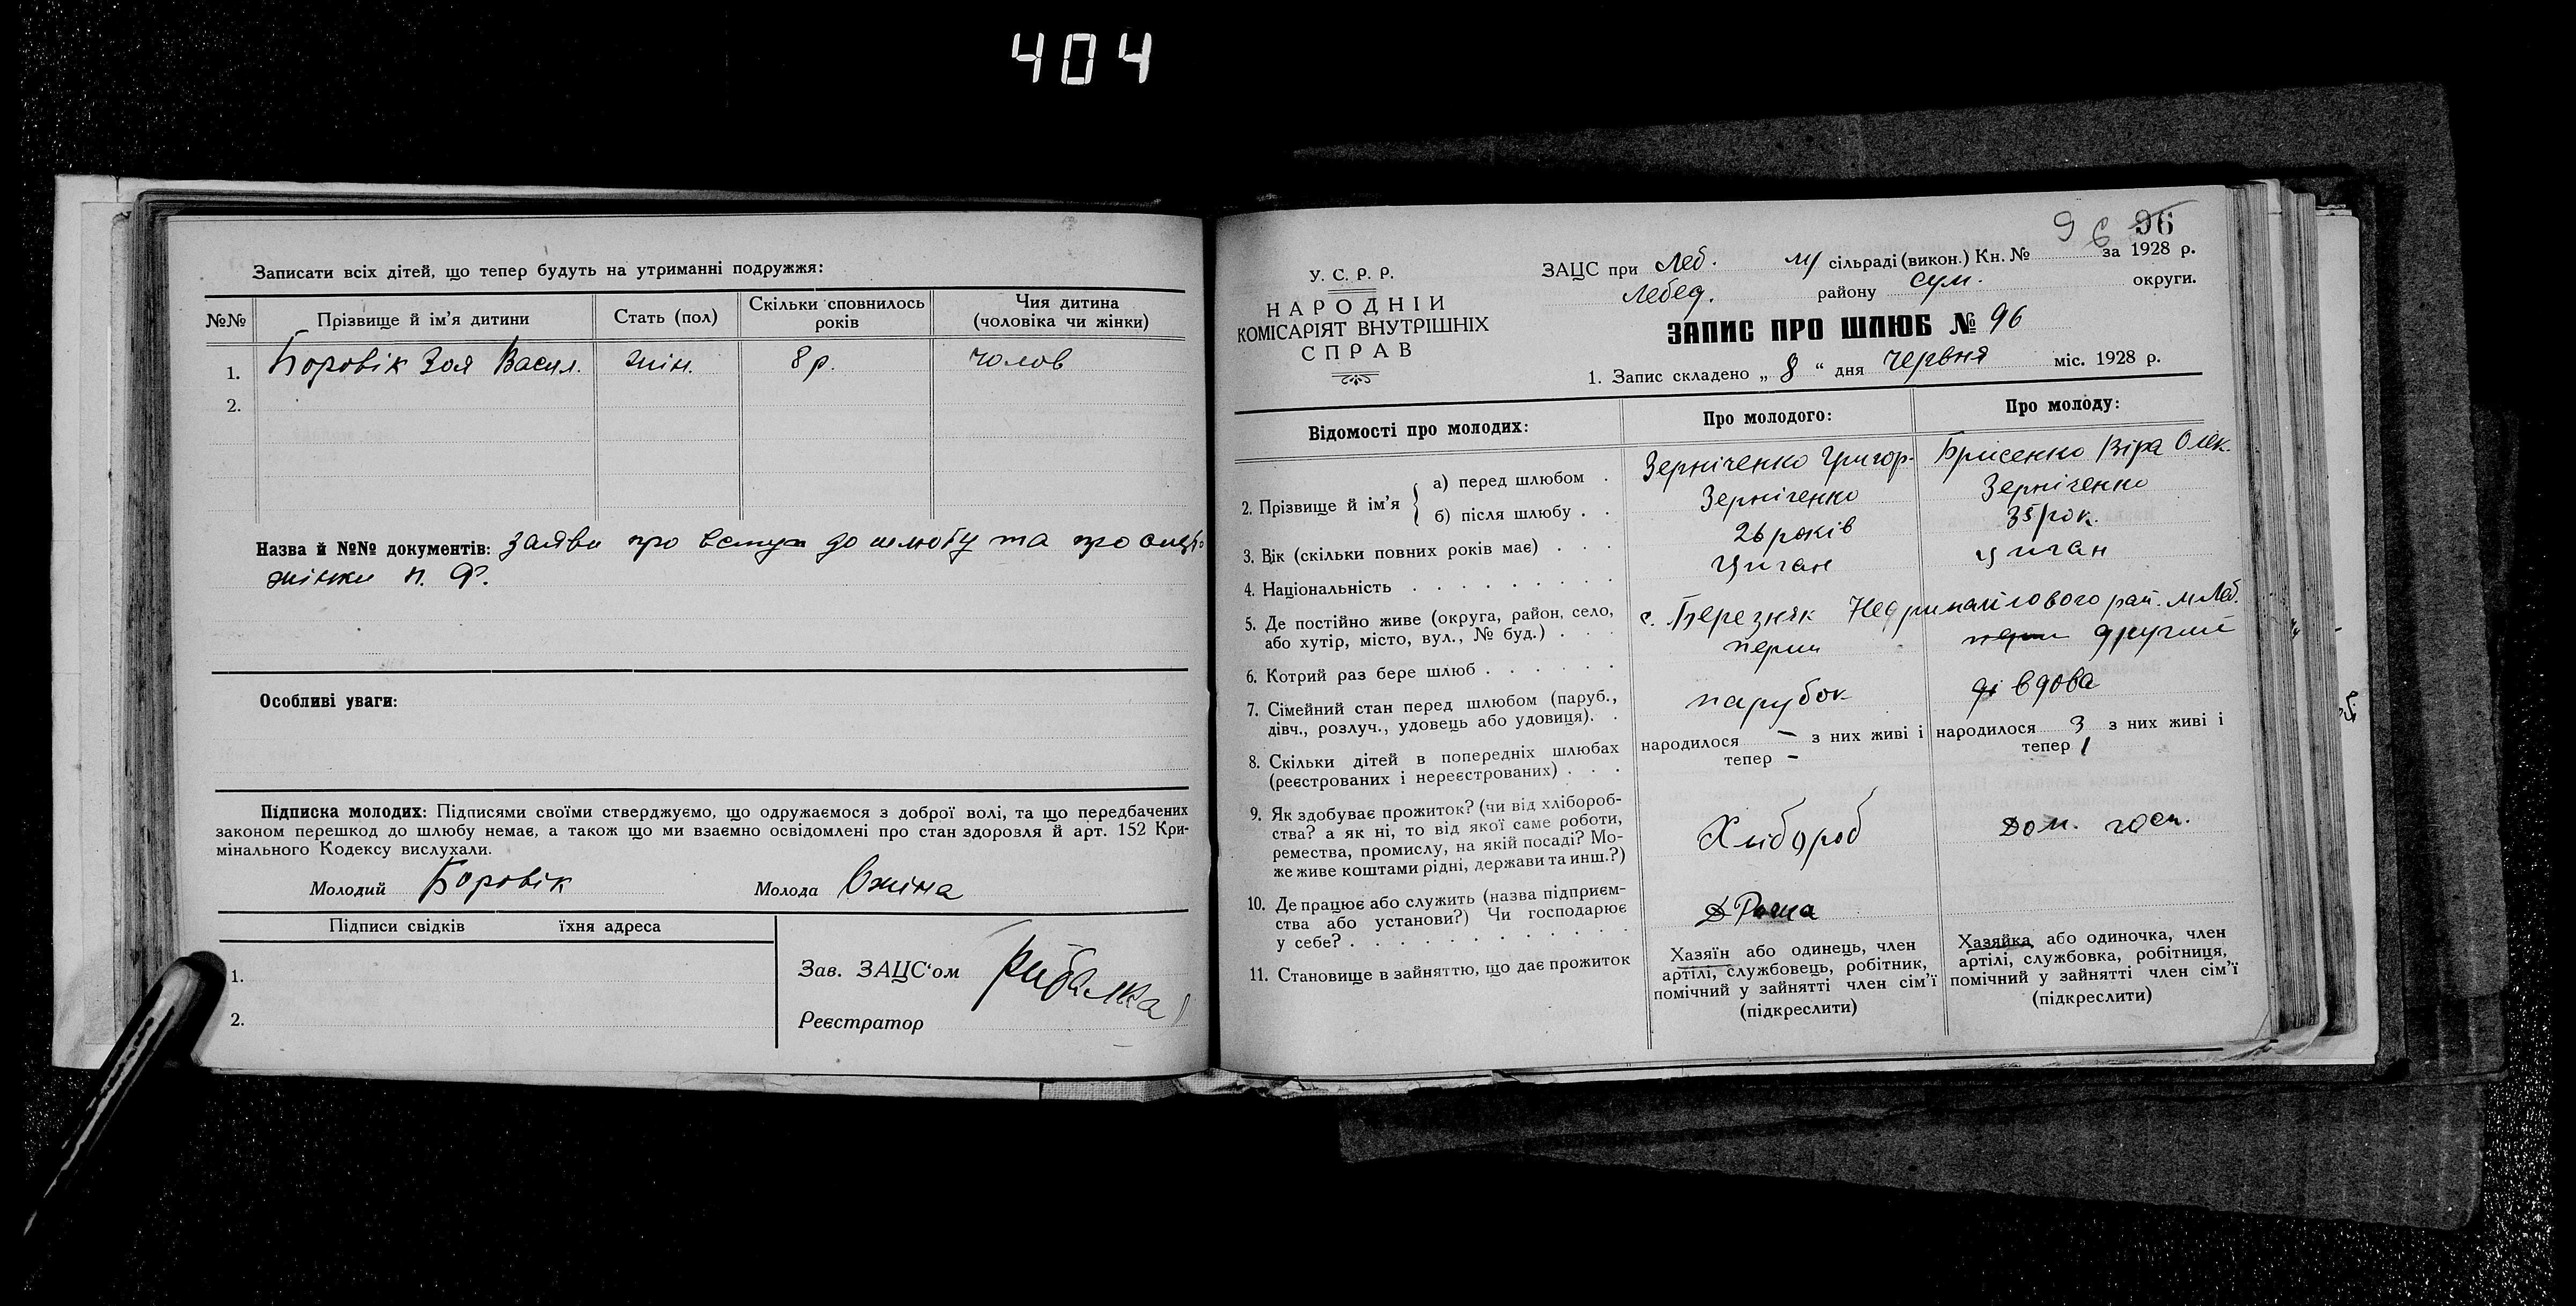 404
Записати всіх дітей, що тепер будуть на утриманні подружжя:
№№ Прізвище й ім'я дитини Стать (пол) Скільки сповнилось років Чия дитина (чоловіка чи жінки)
1. Боровік Зоя Васил. жін. 8 р. чолов
2.
Назва й №№ документів: Заяви про вступ до шлюбу та про
жінки п. Ф.
Особливі уваги:
Підписка молодих: Підписями своїми стверджуємо, що одружаємося з доброї волі, та що передбачених
законом перешкод до шлюбу немає, а також що ми взаємно освідомлені про стан здоровля й арт. 152 Кри-
мінального Кодексу вислухали.
Молодий Боровік Молода
Підписи свідків їхня адреса
1.
2.
Зав. ЗАЦС'ом Рибалка
Реєстратор
96 96
У. С. Р. Р.
НАРОДНІЙ
КОМІСАРІЯТ ВНУТРІШНІХ
СПРАВ
ЗАЦС при Леб. м сільраді (викон.) Кн. № за 1928 р.
Лебед. району Сум. округи.
ЗАПИС ПРО ШЛЮБ № 96
1. Запис складено „ 8 “ дня червня міс. 1928 р.
Відомості про молодих: Про молодого: Про молоду:
2. Прізвище й ім'я
а) перед шлюбом . Зерніченко Григор. Віра Олек.
б) після шлюбу . . Зерніченко Зерніченко
3. Вік (скільки повних років має) . . . 26 років 35 рок.
4. Національність . . . . . . . . . Циган циган
5. Де постійно живе (округа, район, село,
або хутір, місто, вул., № буд.) . . . с. Березняк Недригайлового рай. м Леб.
6. Котрий раз бере шлюб . . . . . . перш перш другий
7. Сімейний стан перед шлюбом (паруб.,
дівч., розлуч., удовець або удовиця). . парубок ді вдова
8. Скільки дітей в попередніх шлюбах
(реєстрованих і нереєстрованих) . . .
народилося – з них живі і
тепер –
народилося 3 з них живі і
тепер 1
9. Як здобуває прожиток? (чи від хлібороб-
ства? а як ні, то від якої саме роботи,
ремества, промислу, на якій посаді? Мо-
же живе коштами рідні, держави та инш.?)
Хлібороб Дом. госп.
10. Де працює або служить (назва підприєм-
ства або установи?) Чи господарює
у себе? . . . . . . . . . . . .
11. Становище в зайняттю, що дає прожиток
Хазяїн або одинець, член
артілі, службовець, робітник,
помічний у зайнятті член сім'ї
(підкреслити)
Хазяйка або одиночка, член
артілі, службовка, робітниця,
помічний у зайнятті член сім'ї
(підкреслити)